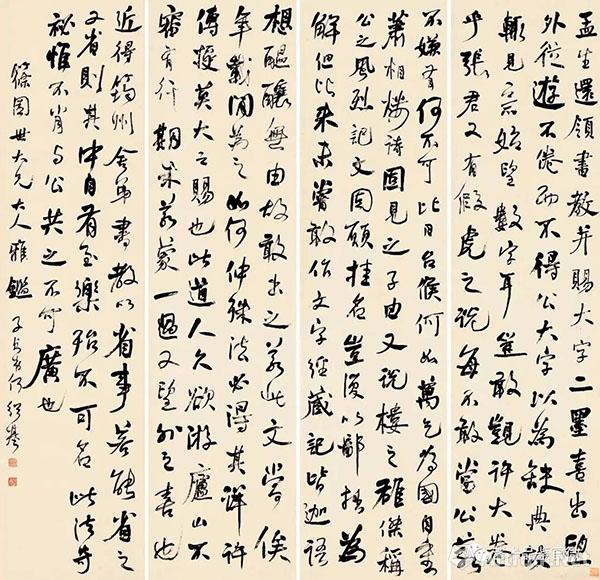 孟生還領書教并賜大字二墨喜出望
外從遊不倦而不得公大字以為缺典故
輒見于言始望數字耳豈敢覬許大卷
乎張君又有假虎之說每不敢當公若
不嫌有何不可比日台候何如萬乞為國自重
蕭相樓詩固見之子由又說樓之雄傑稱
公之風烈記文固願挂名豈復以鄙拙為
解但比來未嘗敢作文字經藏記皆迦語
想醞釀無由故敢出之若此文當俟
年載間為之如何仲殊法必得其詳許
傳授莫大之賜也此道人久欲游廬山不
審有行期未若蒙一過又望外之喜也
近得筠州舍弟書教以省事若能省之
又省則其中自有至樂殆不可名此法奇
祕惟不肖與公共之不可廣也
篠園世大兄大人雅鑑 子貞弟何紹基